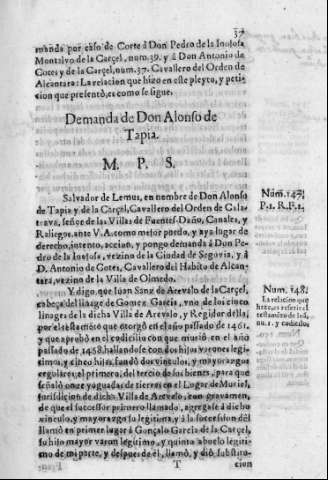 37
manda por caso de Corte à Don Pedro de la Inojosa
Montalvo de la Carçel, num. 39. y à Don Antonio de
Cotes y de la Carçel, num. 37. Cavallero del Orden de
Alcantara: La relacion que hizo en este pleyto, y peti-
cion que presentò, es como se sigue.
Demanda de Don Alonso de
Tapia.
M. P. S.
Salvador de Lemus, en nombre de Don Alonso
de Tapia y de la Carçel, Cavallero del Orden de Cala-
trava, señor de las Villas de Fuentes-Daño, Canales, y
Raliegos, ante V. A. como mejor puedo, y aya lugar de
derecho, intento, accion, y pongo demanda à Don Pe-
dro de la Inojosa, vezino de la Ciudad de Segovia, y à
D. Antonio de Cotes, Cavallero del Habito de Alcan-
tara, vezino de la Villa de Olmedo.
Y digo, que Iuan Sanz de Arevalo de la Carçel,
cabeça del linage de Gomez Garcia, uno de los cinco
linages de la dicha Villa de Arevalo, y Regidor della,
por el testamẽto que otorgò en el año passado de 1461.
y que aprobò en el codicilio con que murió en el año
passado de 1458. hallandose con dos hijos varones legi-
timos, y cinco hijas, fundò dos vinculos, y mayorazgos
regulares, el primero, del tercio de sus bienes, para que
señalò onze yoguadas de tierras en el Lugar de Muriel,
jurisdicion de dicha Villa de Arevalo, con gravamen,
de que el successor primero llamado, agregasse à dicho
vinculo, y mayorazgo su legitima, y à la succession del
llamò en primer lugar à Gonçalo Garcia de la Carçel,
su hijo mayor varon legitimo, y quinto abuelo legiti-
mo de mi parte, y despues de èl, llamò, y diò substitu-
T
cion
Num. 147.
P. 2. R. P. 1.
Num. 148.
La relacion que
haze, es referir el
testamento de Iuã,
nu. 1. y codicilo.